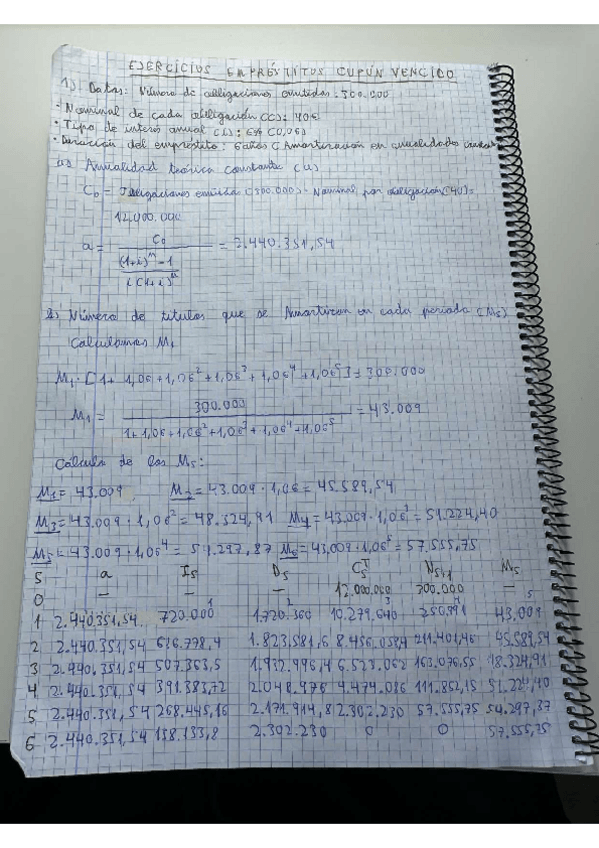 EJERCICIOS EMPRÉSTITOS CUPÓN VENCIDO
1) Datos: Número de obligaciones emitidas: 300.000
· Nominal de cada obligación (C): 40€
· Tipo de interés anual (i): 6% (0,06)
· Duración del empréstito: 6 años (Amortización en anualidades
a) Anualidad teórica constante (a)
C₀ = Obligaciones emitidas (300.000) · Nominal por obligación (40) =
12.000.000
a = C₀ / ((1+i)^n - 1 / i(1+i)^n) = 2.440.351,54
b) Número de títulos que se Amortizan en cada periodo (Ms)
Calculamos M₁
M₁ · [1 + 1,06 + 1,06² + 1,06³ + 1,06⁴ + 1,06⁵] = 300.000
M₁ = 300.000 / (1 + 1,06 + 1,06² + 1,06³ + 1,06⁴ + 1,06⁵) = 43.009
Cálculo de los Ms:
M₁ = 43.009 M₂ = 43.009 · 1,06 = 45.589,54
M₃ = 43.009 · 1,06² = 48.324,91 M₄ = 43.009 · 1,06³ = 51.224,40
M₅ = 43.009 · 1,06⁴ = 54.297,87 M₆ = 43.009 · 1,06⁵ = 57.555,75
S a Is Ds Cs Ns+1 Ms
0 — — — 12.000.000 300.000 —
1 2.440.351,54 720.000 1.720.360 10.279.640 43.009
2 2.440.351,54 1.823.581,6 8.456.058,4 211.401,46 45.589,54
3 2.440.351,54 507.363,5 1.932.996,4 6.523.062 163.076,55 48.324,91
4 2.440.351,54 391.383,72 2.048.976 4.474.086 111.852,15 51.224,40
5 2.440.351,54 268.445,16 2.171.914,8 2.302.230 57.555,75 54.297,37
6 2.440.351,54 138.133,8 2.302.230 0 0 57.555,75